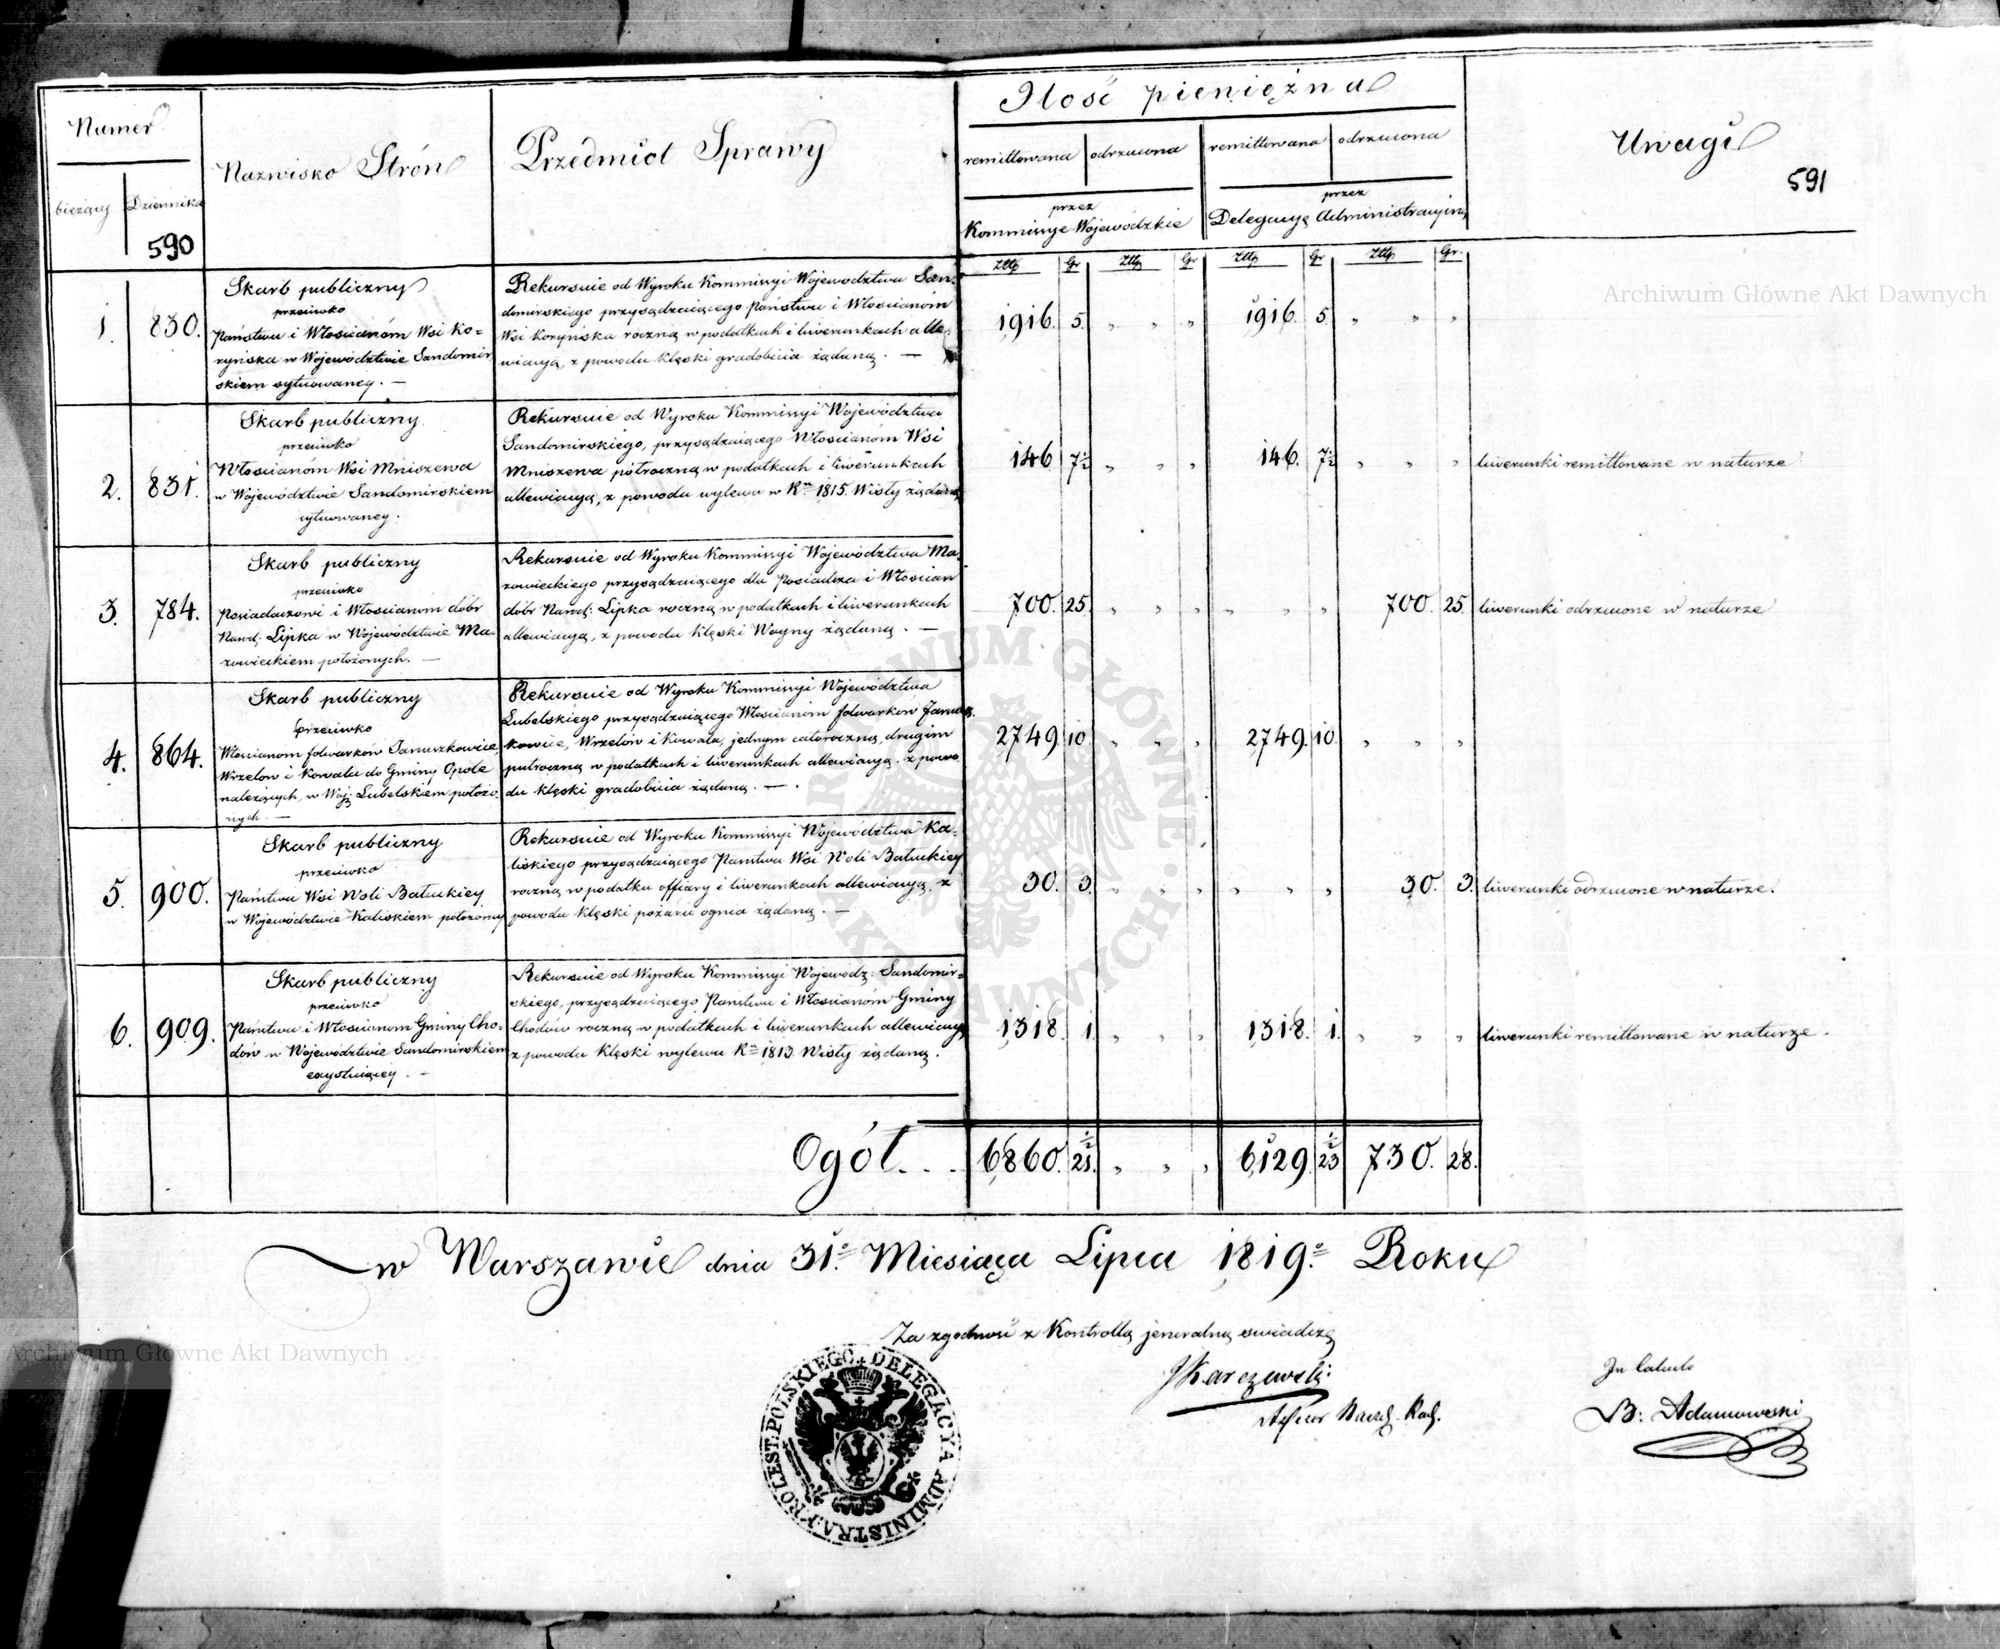 Numer
bieżący
Dziennika
590
Nazwisko Strón
Przedmiot Sprawy
Ilość pieniężna
remittowana
odrzucona
remittowana
odrzucona
przez
Kommissye Wojewódzkie
przez
Delegacyą Administracyiną
Uwagi
591
Złtp Gr Złtp Gr Złtp Gr Złtp Gr.
1. 830.
Skarb publiczny
przeciwko
Państwu i Włościanóm Wsi Ko-
zyńska w Województwie Sandomir
skiem sytuowaney. —
Rekursie od Wyroku Kommissyi Województwa San-
domirskiego przysądzaiącego Państwu i Włościanóm
Wsi Kozyńska roczną w podatkach i liwerunkach alle-
wiacyą, z powodu klęski gradobicia żądaną. —
1916. 5. " " " 1916. 5 " " "
2. 831.
Skarb publiczny
przeciwko
Włościanóm Wsi Mniszewa
w Województwie Sandomirskiem
sytuowaney.
Rekursie od Wyroku Kommissyi Województwa
Sandomirskiego, przysądzaiącego Włościanóm Wsi
Mniszewa półroczną w podatkach i liwerunkach
allewiacyą, z powodu wylewu w Ru 1815. Wisły żądaną
146 7½ " " " 146. 7½ " " "
liwerunki remittowane w naturze
3. 784.
Skarb publiczny
przeciwko
Posiadaczowi i Włościanóm dóbr
Narod: Lipka w Województwie Ma-
zowieckiem położonych. —
Rekursie od Wyroku Kommissyi Województwa Ma-
zowieckiego przysądzaiącego dla Posiadcza i Włościan
dóbr Narod: Lipka roczną w podatkach i liwerunkach
allewiacyą, z powodu klęski Woyny żądaną. —
700. 25. " " " " " " 700. 25.
liwerunki odrzucone w naturze
4. 864.
Skarb publiczny
przeciwko
Włościanom folwarków Januszkowice
Wrzelow i Kowala do Gminy Opole
należących, w Woj: Lubelskiem położo-
nych. —
Rekursie od Wyroku Kommissyi Województwa
Lubelskiego przysądzaiącego Włościanóm folwarków Janusz-
kowice, Wrzelów i Kowala, jednym całoroczną, drugim
pułroczną w podatkach i liwerunkach allewiacyą, z powo-
du klęski gradobicia żądaną. — .
2749 10 " " " 2749. 10. " " "
5. 900.
Skarb publiczny
przeciwko
Państwu Wsi Woli Bałuckiey
w Województwie Kaliskiem położoney
Rekursie od Wyroku Kommissyi Województwa Ka-
liskiego przysądzaiącego Państwu Wsi Woli Bałuckiey
roczną w podatku offiary i liwerunkach allewiacyą, z
powodu klęski pożaru ognia żądaną. —
30. 3. " " " " " " 30. 3.
liwerunki odrzucone w naturze.
6. 909.
Skarb publiczny
przeciwko
Państwu i Włościanom Gminy Cho-
dów w Województwie Sandomirskiem
exystuiącey. —
Rekursie od Wyroku Kommissyi Wojewódz: Sandomir-
skiego, przysądzaiącego Państwu i Włościanóm Gminy
Chodów roczną w podatkach i liwerunkach allewiacyą
z powodu klęski wylewu Ru 1813 Wisły żądaną.
1318 1. " " " 1318. 1. " " "
liwerunki remittowane w naturze.
Ogół... 6860. 21.½ " " " 6129. 23½ 730. 28.
w Warszawie dnia 31o. Miesiąca Lipca 1819o. Roku
Za zgodność z Kontrollą jeneralną świadczę
JKarczewski
Assessor
In Calculo
B: Adamowski
KROLEST: POLSKIEGO DELEGACYA ADMINISTRA:
Archiwum Główne Akt Dawnych
Archiwum Główne Akt Dawnych
ARCHIWUM GŁÓWNE AKT DAWNYCH